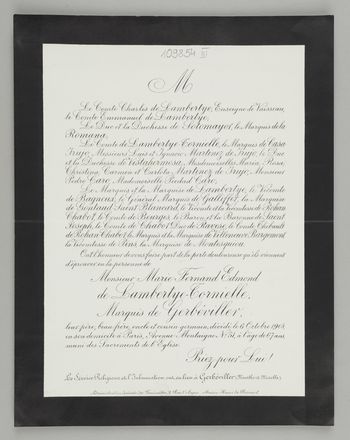 109854 III
M
Le Comte Charles de Lambertye, Enseigne de Vaisseau,
le Comte Emmanuel de Lambertye,
Le Duc et la Duchesse de Sotomayor, le Marquis de la
Romana,
Le Comte de Lambertye-Cornielle, le Marquis de Casa
Irujo, Messieurs Luis et Ignacio Martinez de Irujo, le Duc
et la Duchesse de Vistahermosa, Mesdemoiselles Maria, Rosa,
Christina, Carmen et Carlota Martinez de Irujo, Monsieur
Pedro Caro, Mademoiselle Piedad Caro,
Le Marquis et la Marquise de Lambertye, le Vicomte
de Bagneux, le Général Marquis de Galliffet, la Marquise
de Gontaut Saint Blancard, le Vicomte et la Vicomtesse de Rohan
Chabot, le Comte de Bourges, le Baron et la Baronne de Saint
Joseph, le Comte de Chabot, Duc de Ravese, le Comte Thibault
de Rohan Chabot, le Marquis et la Marquise de Villeneuve Bargemont,
la Vicomtesse de Pins, la Marquise de Montesquiou
Ont l'honneur de vous faire part de la perte douloureuse qu'ils viennent
d'éprouver en la personne de
Monsieur Marie Fernand Edmond
de Lambertye-Cornielle,
Marquis de Gerbéviller,
leur père, beau père, oncle et cousin germain, décédé le 6 Octobre 1908
en son domicile à Paris, Avenue Montaigne, N° 51, à l'âge de 67 ans,
muni des Sacrements de l'Eglise.
Priez pour Lui!
Le Service Religieux et l'Inhumation ont eu lieu à Gerbéviller (Meurthe et Moselle)